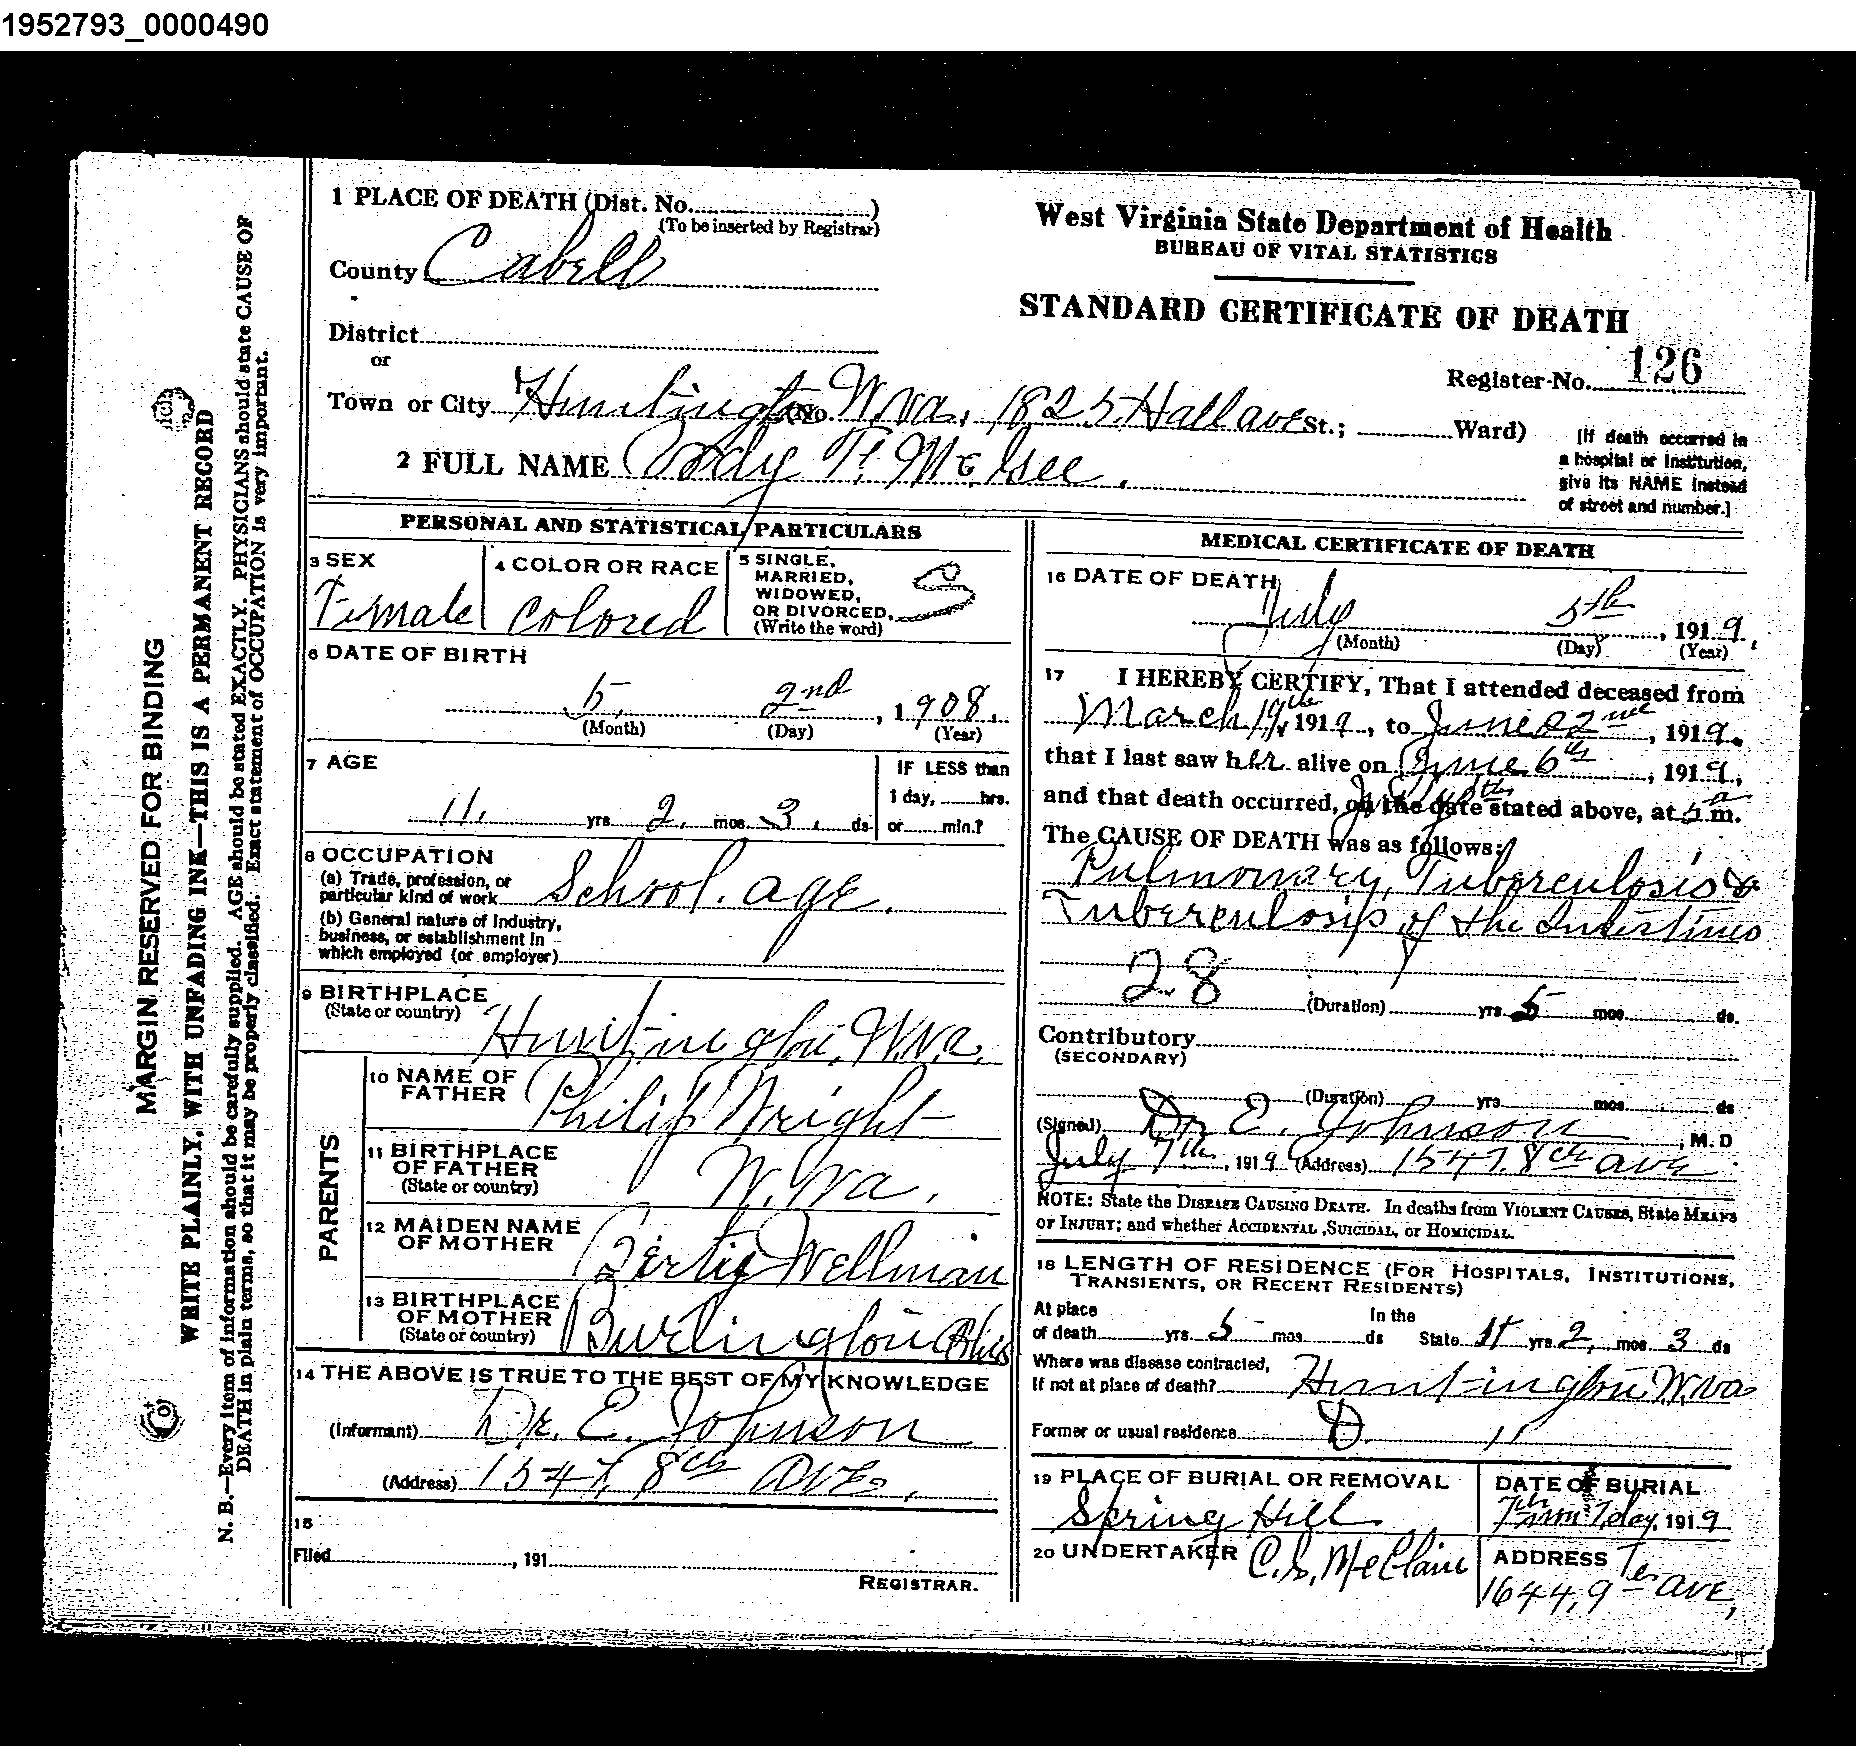 1952793_0000490
MARGIN RESERVED FOR BINDING
WRITE PLAINLY, WITH UNFADING INK—THIS IS A PERMANENT RECORD
N. B.—Every item of information should be carefully supplied. AGE should be stated EXACTLY. PHYSICIANS should state CAUSE OF
DEATH in plain terms, so that it may be properly classified. Exact statement of OCCUPATION is very important.
1 PLACE OF DEATH (Dist. No. )
(To be inserted by Registrar)
County Cabell
District
or
Town or City Huntington W.Va. (No. 1825 Hall ave St.; Ward)
2 FULL NAME T. McGee.
West Virginia State Department of Health
BUREAU OF VITAL STATISTICS
STANDARD CERTIFICATE OF DEATH
Register No. 126
[If death occurred in
a hospital or institution,
give its NAME instead
of street and number.]
PERSONAL AND STATISTICAL PARTICULARS
3 SEX
Female
4 COLOR OR RACE
Colored
5 SINGLE,
MARRIED,
WIDOWED,
OR DIVORCED.
(Write the word)
6 DATE OF BIRTH
5, 2nd, 1908.
(Month) (Day) (Year)
7 AGE
11. yrs 2. mos 3. ds
IF LESS than
1 day, hrs.
or min.?
8 OCCUPATION
(a) Trade, profession, or
particular kind of work School. age.
(b) General nature of Industry,
business, or establishment in
which employed (or employer)
9 BIRTHPLACE
(State or country) Huntington, W.Va.
PARENTS
10 NAME OF
FATHER Philip Wright
11 BIRTHPLACE
OF FATHER
(State or country) W.Va.
12 MAIDEN NAME
OF MOTHER Gertie Wellman
13 BIRTHPLACE
OF MOTHER
(State or country) Burlington Ohio
14 THE ABOVE IS TRUE TO THE BEST OF MY KNOWLEDGE
(Informant) Dr. E. Johnson
(Address) 1547, 8th AVE.
15
Filed , 191
REGISTRAR.
MEDICAL CERTIFICATE OF DEATH
16 DATE OF DEATH
July 5th, 1919.
(Month) (Day) (Year)
17 I HEREBY CERTIFY, That I attended deceased from
March 19th, 1919, to June 22nd, 1919.
that I last saw her alive on June 6th, 1919,
and that death occurred, on the date stated above, at 5 a m.
The CAUSE OF DEATH was as follows:
Pulmonary, Tuberculosis &
Tuberculosis of the Intestines
28
(Duration) yrs 5 mos ds.
Contributory
(SECONDARY)
(Duration) yrs mos ds
(Signed) Dr E. Johnson, M.D
July 7th, 1919 (Address) 1547, 8th ave
NOTE: State the DISEASE CAUSING DEATH. In deaths from VIOLENT CAUSES, State MEANS
OF INJURY; and whether ACCIDENTAL, SUICIDAL, or HOMICIDAL.
18 LENGTH OF RESIDENCE (FOR HOSPITALS, INSTITUTIONS,
TRANSIENTS, OR RECENT RESIDENTS)
At place In the
of death yrs 5 mos ds State 11 yrs 2, mos 3 ds
Where was disease contracted,
If not at place of death? Huntington, W.Va
Former or usual residence D. "
19 PLACE OF BURIAL OR REMOVAL
Spring Hill
DATE OF BURIAL
7th day, 1919
20 UNDERTAKER C. S. McClain
ADDRESS
1644, 9th AVE,